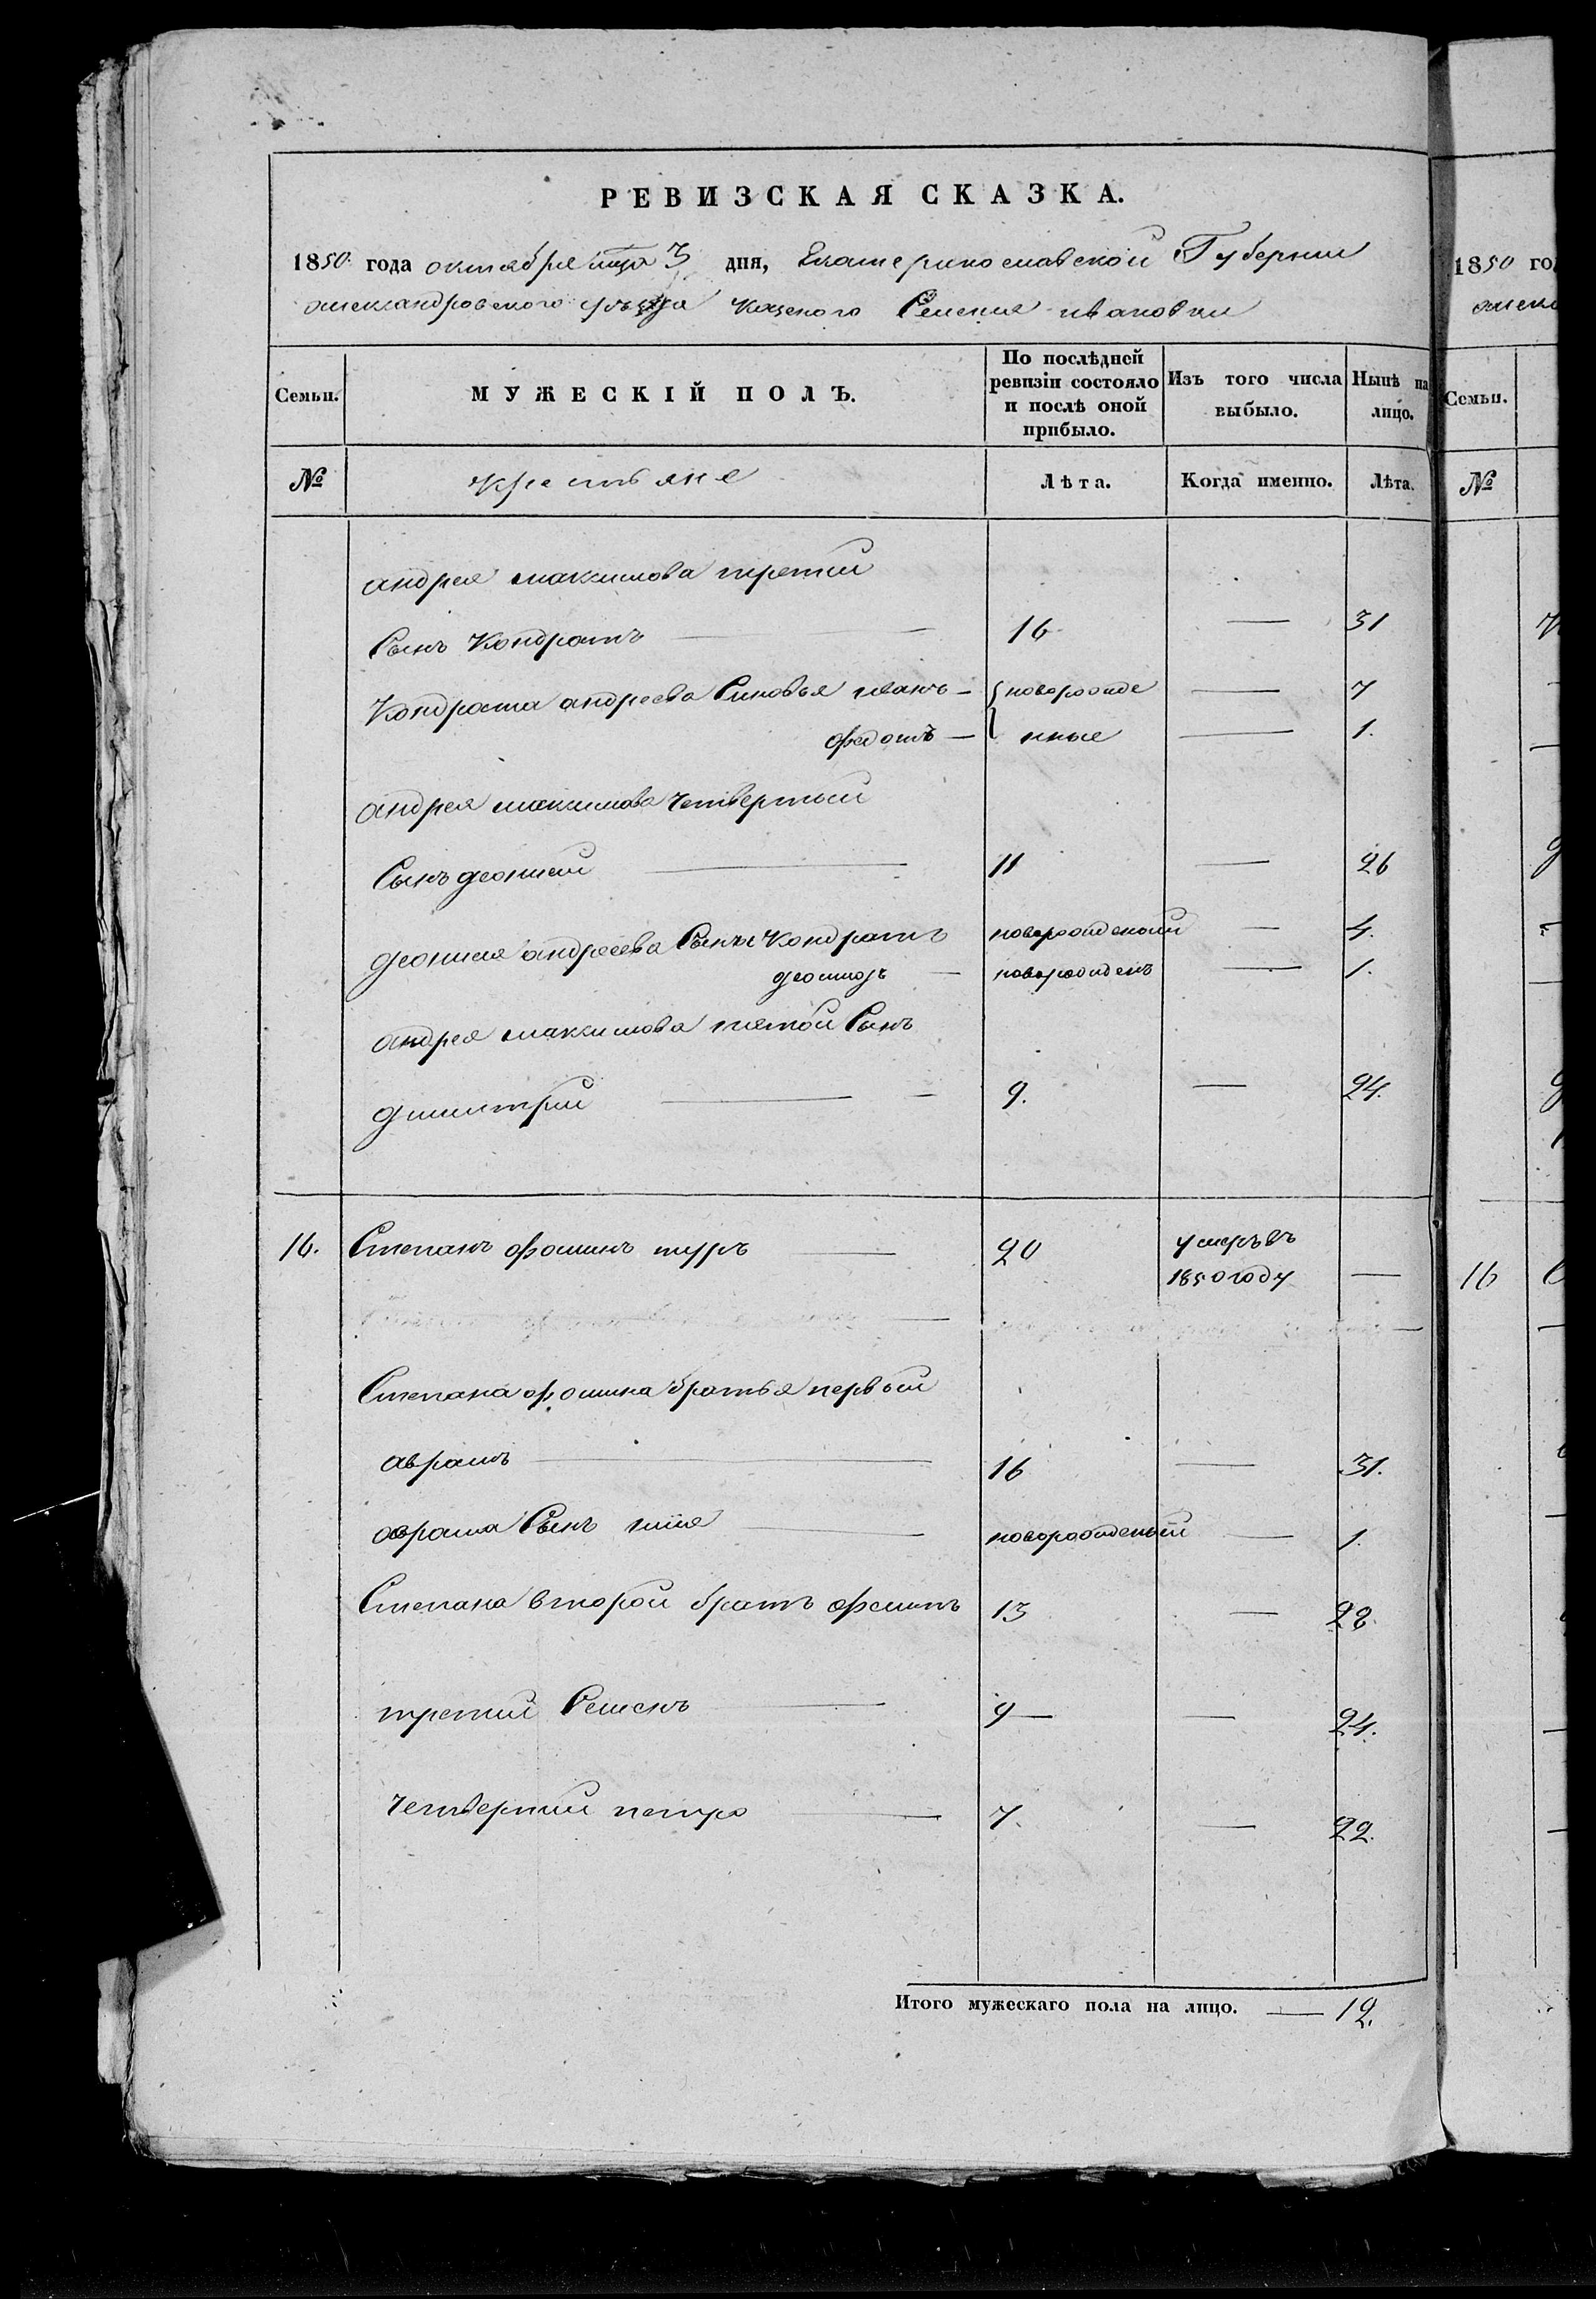 РЕВИЗСКАЯ СКАЗКА.
1850 года октября мца 3 дня, Екатеринославской Губернии
александровского уезда Селения ивановки
Семьи.
МУЖЕСКІЙ ПОЛЪ.
По послѣдней ревизіи состояло и послѣ оной прибыло.
Изъ того числа выбыло.
Нынѣ на лицо.
№
крестьяне
Лѣта.
Когда именно.
Лѣта.
андрея максимова третий
Сынъ Кондратъ — 16 — 31
Кондрата андреева Синовья иванъ — новорожде — 7
федотъ — нные — 1.
андрея максимова четвертый
Сынъ деонисий — 11 — 26
андреева Сынъ Кондратъ новорожденый — 4.
новорожденъ — 1.
андрея максимова пятой Сынъ
дмитрий — 9. — 24.
16. Степанъ фоминъ — 20 умеръ въ
1850 году —
Степана фомина братья первый
аврамъ — 16 — 31.
аврама Сынъ — новорожденый — 1.
Степана второй братъ 13 — 28
третий Семенъ — 9 — 24.
четвертий петро — 7. — 22.
Итого мужескаго пола на лицо. — 12.
1850 го
Семьи.
№
16